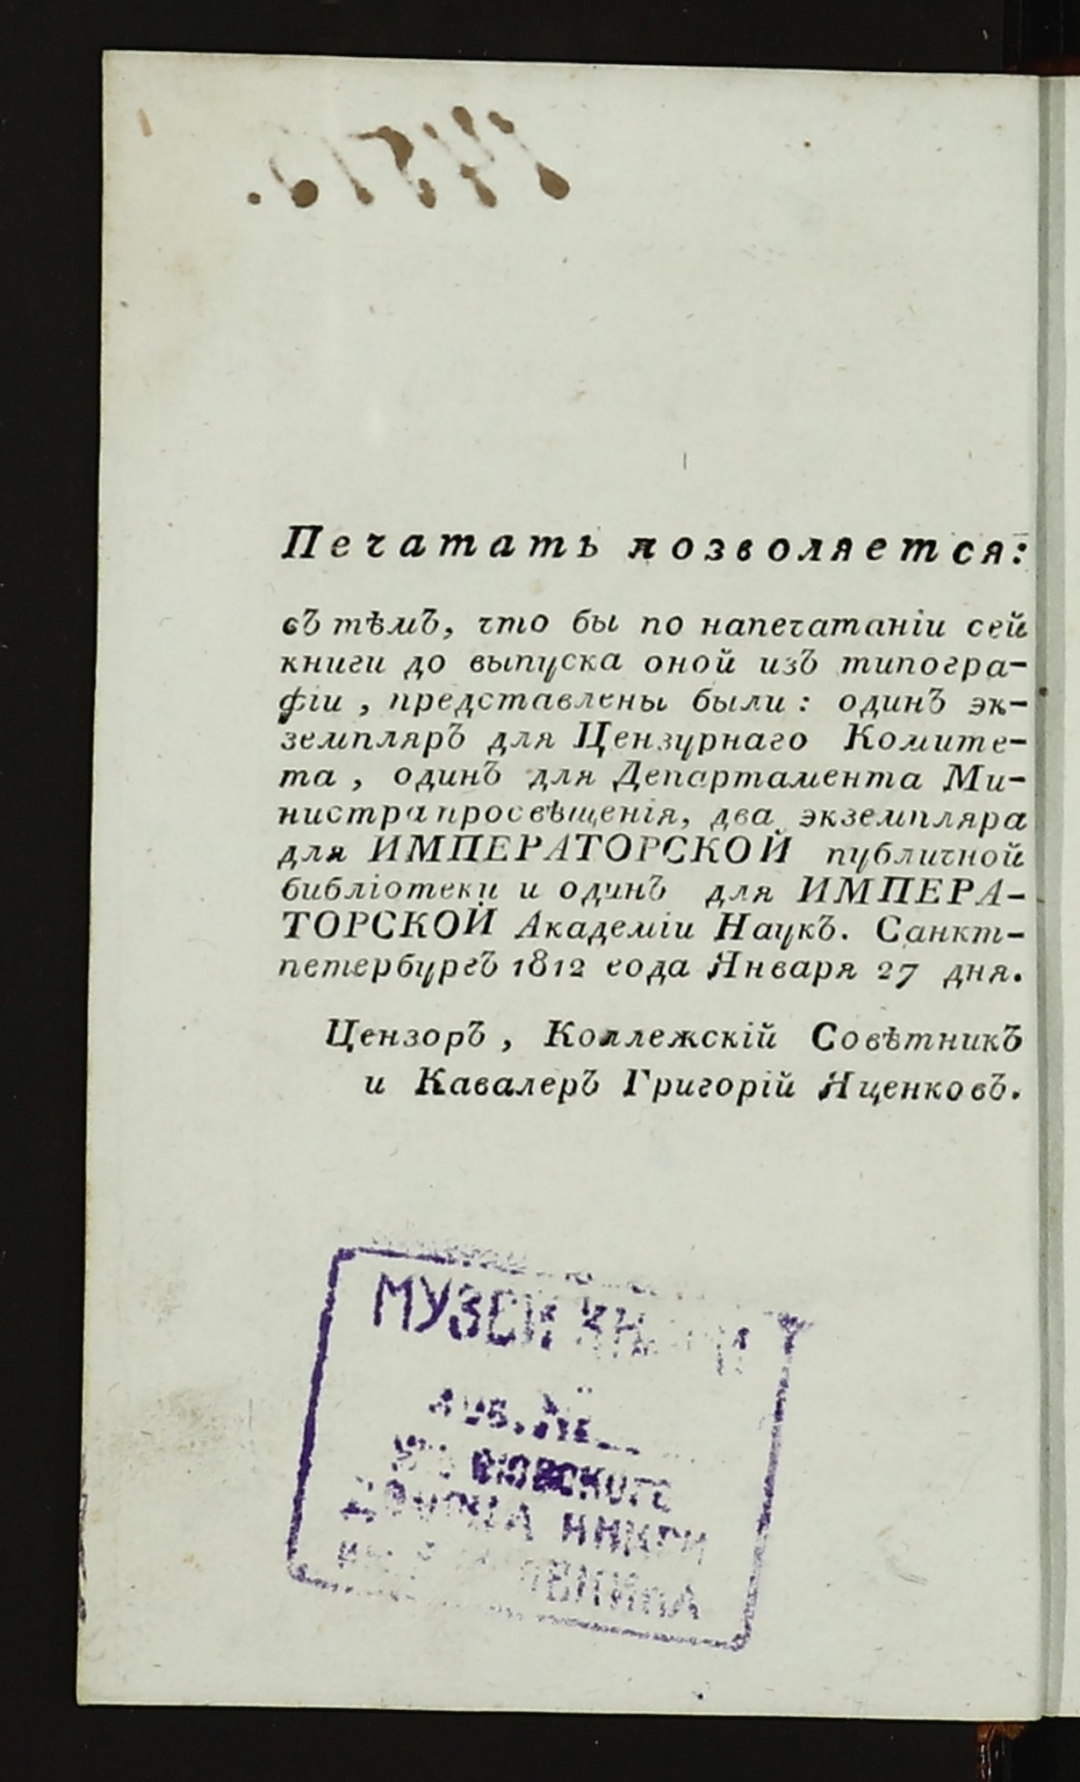 Печатать позволяется:
съ тѣмъ, что бы по напечатаніи сей
книги до выпуска оной изъ типогра-
фіи , представлены были : одинъ эк-
земпляръ для Цензурнаго Комите-
та , одинъ для Департамента Ми-
нистра просвѣщенія, два экземпляра
для ИМПЕРАТОРСКОЙ публичной
библіотеки и одинъ для ИМПЕРА-
ТОРСКОЙ Академіи Наукъ. Санкт-
петербургъ 1812 года Января 27 дня.
Цензоръ , Коллежскій Совѣтникъ
и Кавалеръ Григорій Яценковъ.
МУЗЕЙ